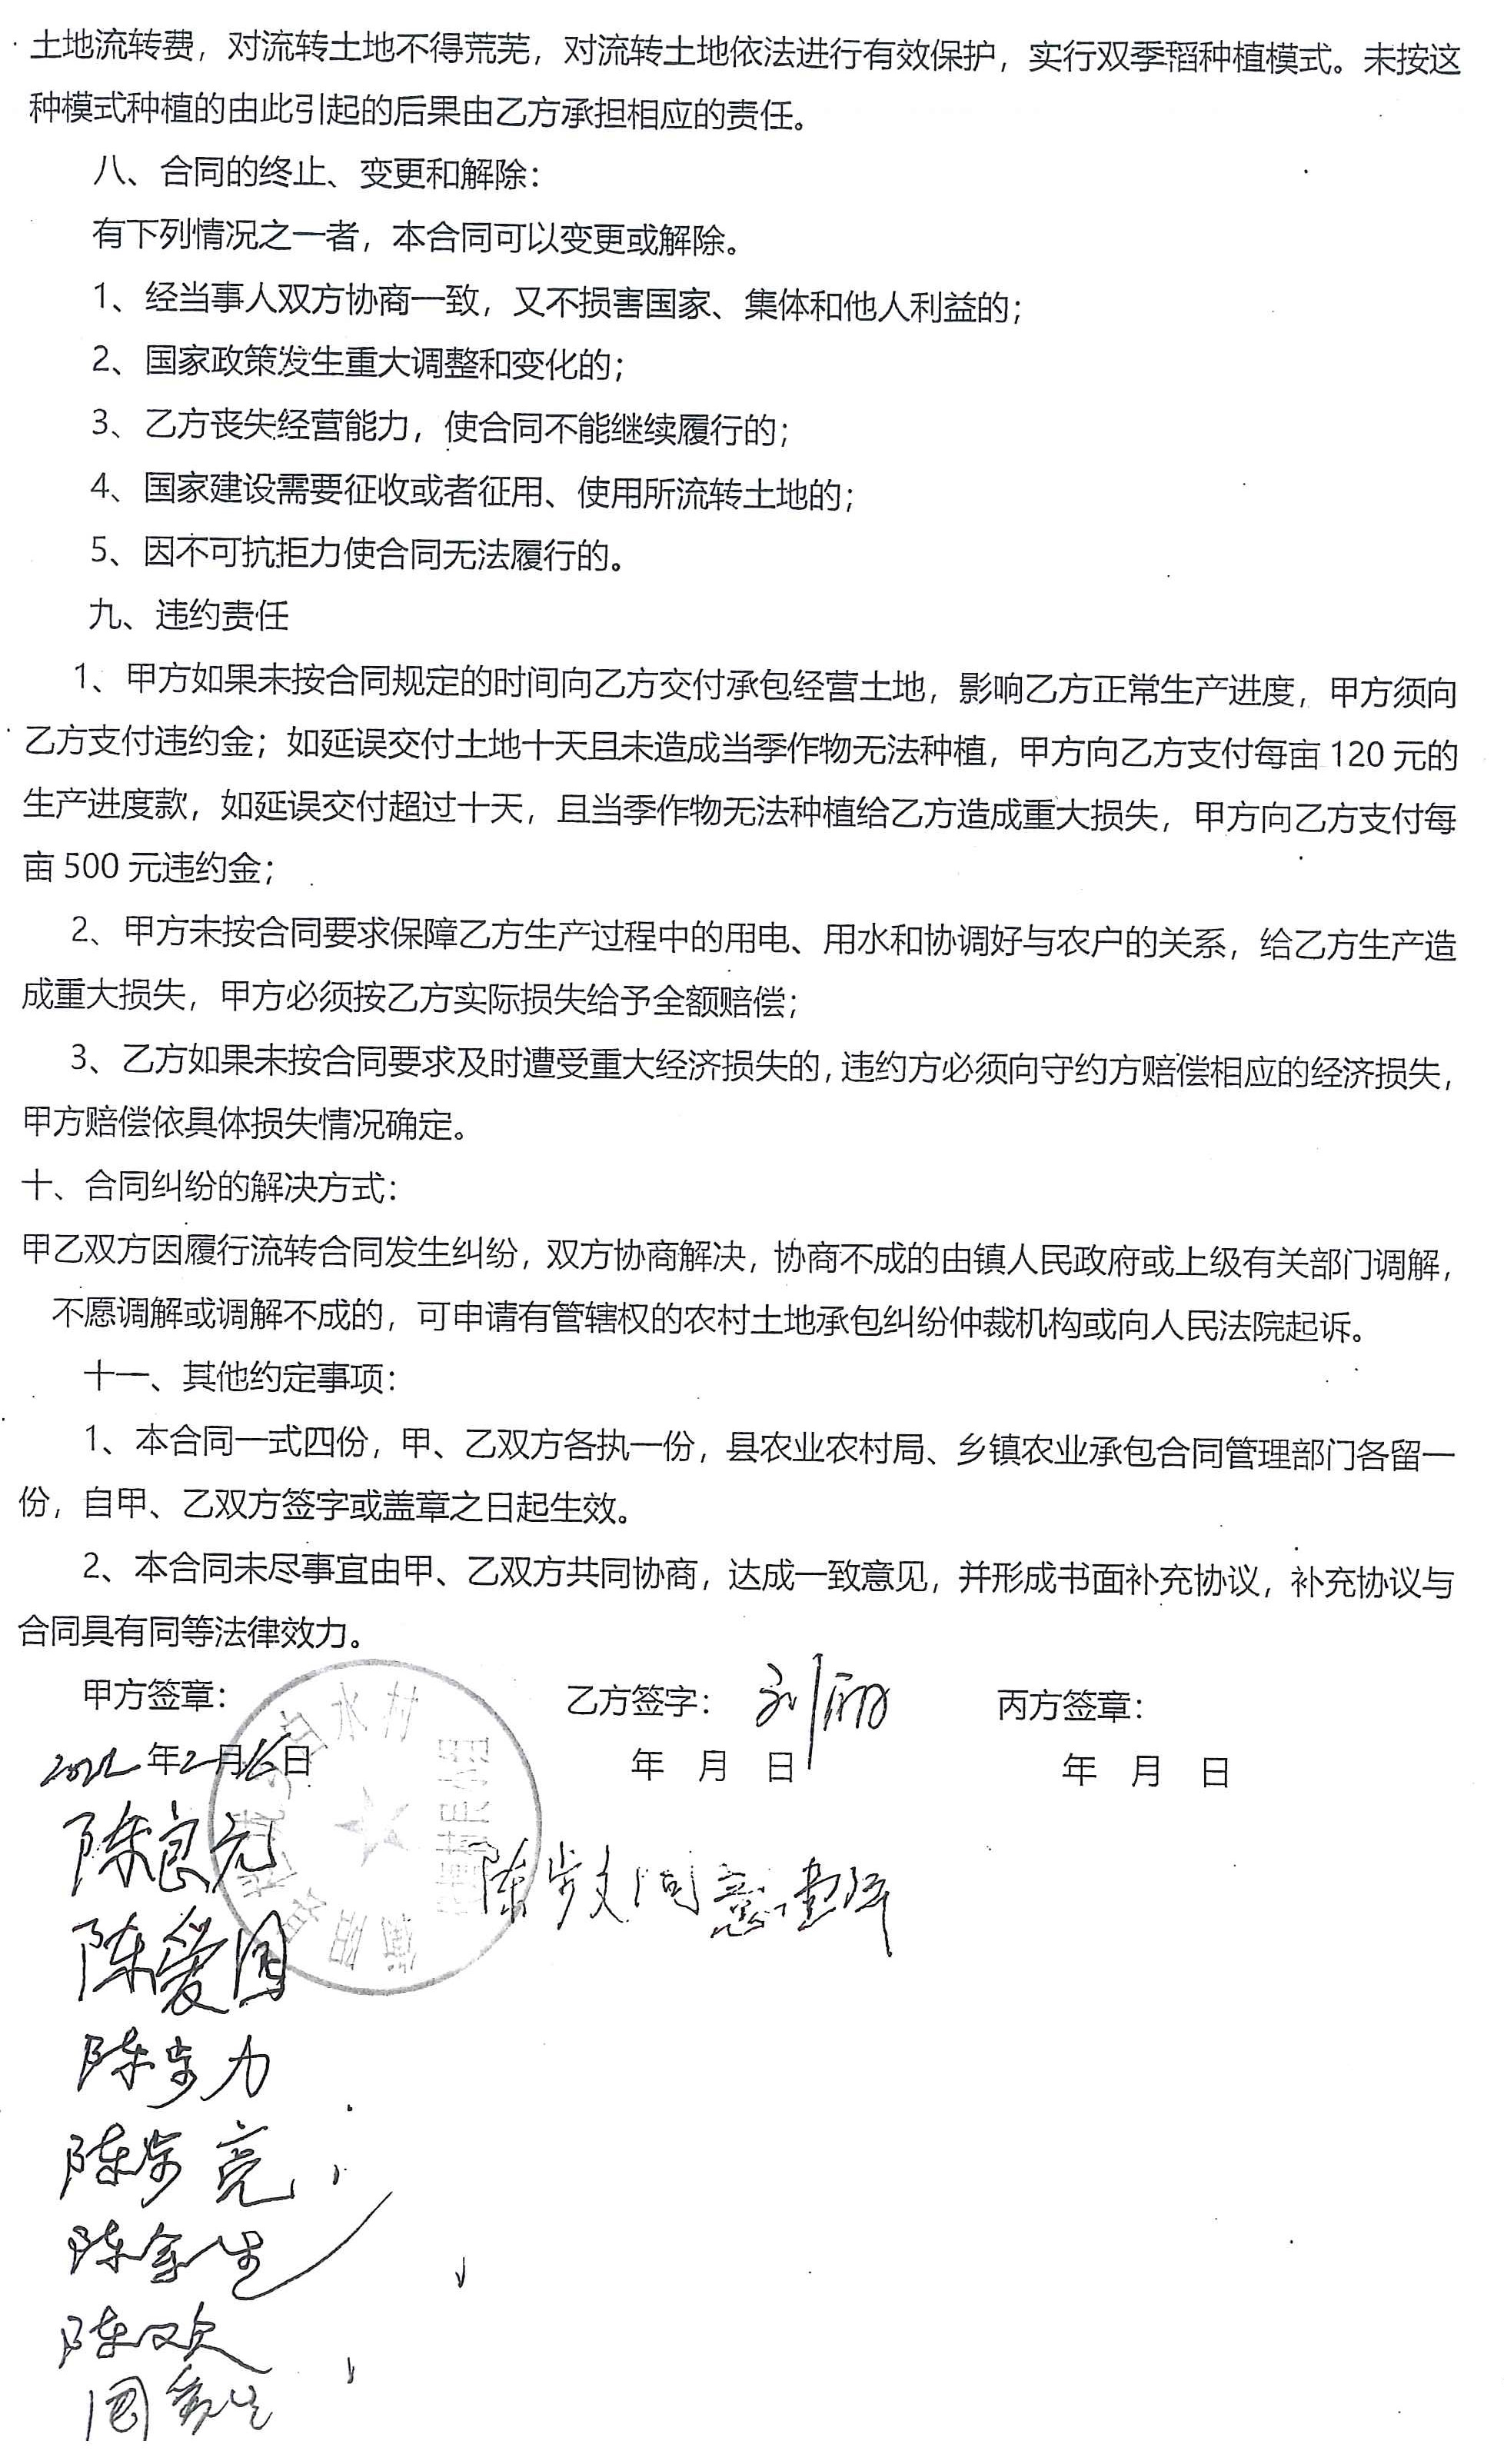 土地流转费，对流转土地不得荒芜，对流转土地依法进行有效保护，实行双季稻种植模式。未按这
种模式种植的由此引起的后果由乙方承担相应的责任。
八、合同的终止、变更和解除：
有下列情况之一者，本合同可以变更或解除。
1、经当事人双方协商一致，又不损害国家、集体和他人利益的；
2、国家政策发生重大调整和变化的；
3、乙方丧失经营能力，使合同不能继续履行的；
4、国家建设需要征收或者征用、使用所流转土地的；
5、因不可抗拒力使合同无法履行的。
九、违约责任
1、甲方如果未按合同规定的时间向乙方交付承包经营土地，影响乙方正常生产进度，甲方须向
乙方支付违约金；如延误交付土地十天且未造成当季作物无法种植，甲方向乙方支付每亩 120 元的
生产进度款，如延误交付超过十天，且当季作物无法种植给乙方造成重大损失，甲方向乙方支付每
亩 500 元违约金；
2、甲方未按合同要求保障乙方生产过程中的用电、用水和协调好与农户的关系，给乙方生产造
成重大损失，甲方必须按乙方实际损失给予全额赔偿；
3、乙方如果未按合同要求及时遭受重大经济损失的，违约方必须向守约方赔偿相应的经济损失，
甲方赔偿依具体损失情况确定。
十、合同纠纷的解决方式：
甲乙双方因履行流转合同发生纠纷，双方协商解决，协商不成的由镇人民政府或上级有关部门调解，
不愿调解或调解不成的，可申请有管辖权的农村土地承包纠纷仲裁机构或向人民法院起诉。
十一、其他约定事项：
1、本合同一式四份，甲、乙双方各执一份，县农业农村局、乡镇农业承包合同管理部门各留一
份，自甲、乙双方签字或盖章之日起生效。
2、本合同未尽事宜由甲、乙双方共同协商，达成一致意见，并形成书面补充协议，补充协议与
合同具有同等法律效力。
甲方签章： 乙方签字： 丙方签章：
2022 年 2 月 日 年 月 日 年 月 日
陈良元
陈爱国
陈 力
陈 亮
陈金生
陈欢